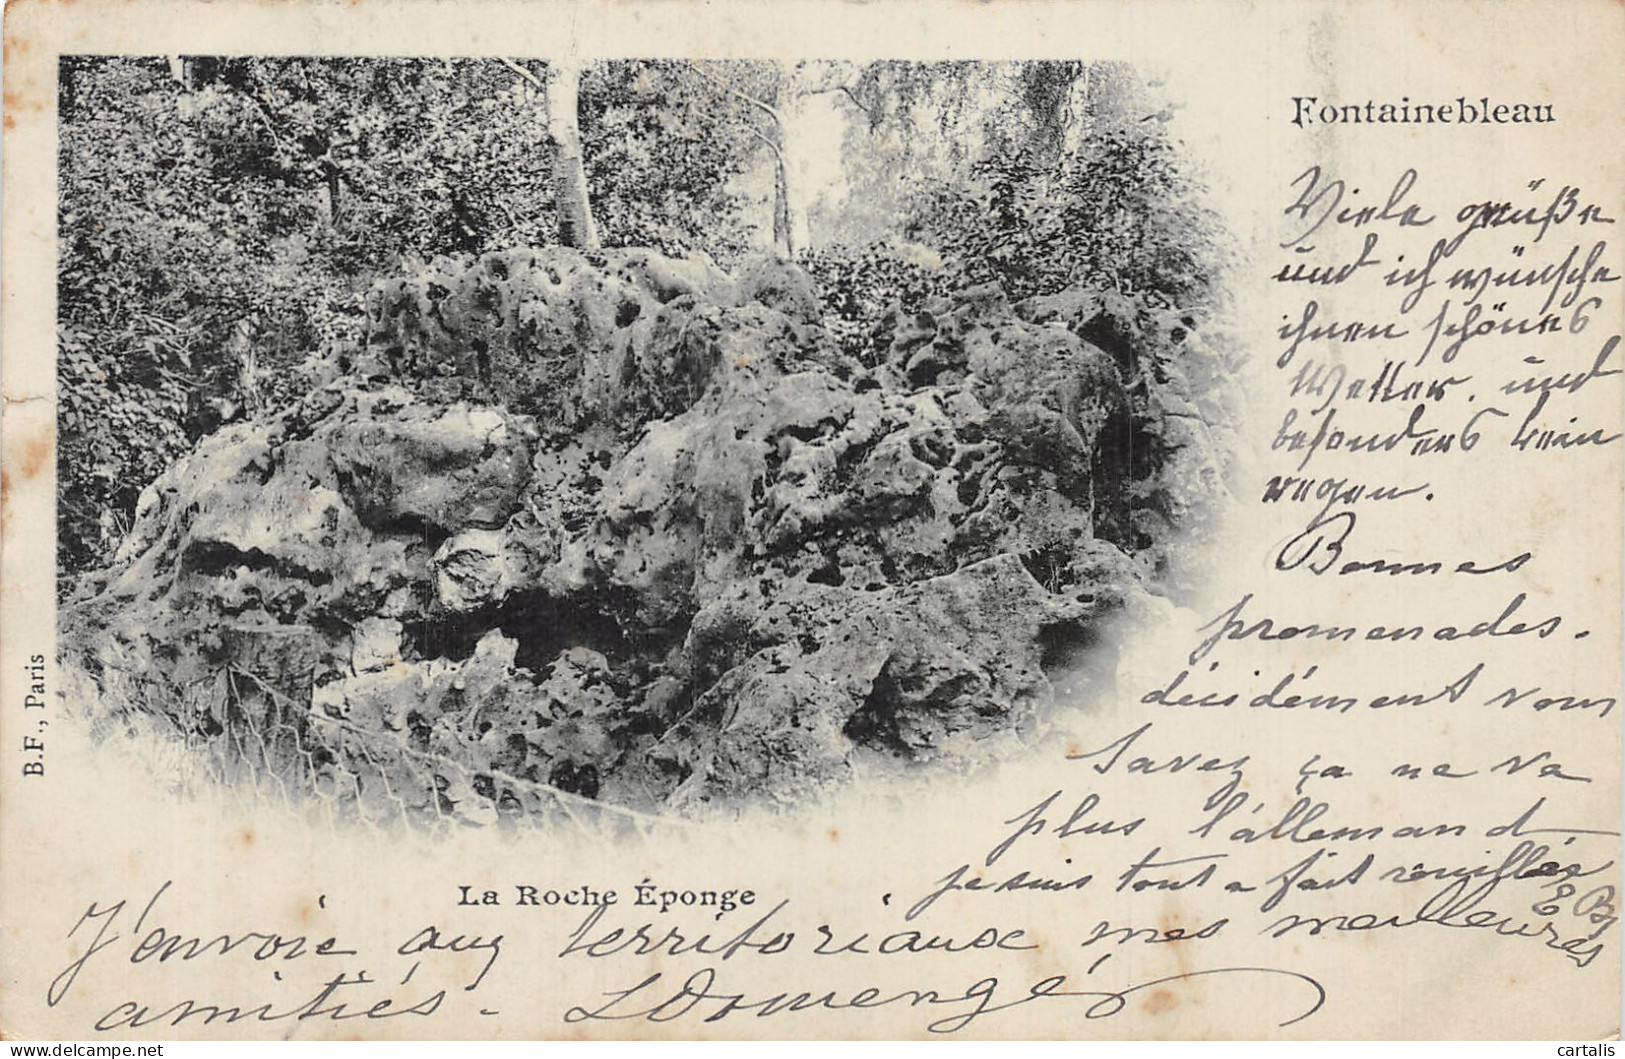 Fontainebleau
Viele grüße
und ich wünsche
ihnen schönes
Wetter. und
besonders kein
regen.
Bonnes
promenades.
décidément vous
savez ça ne va
plus l'allemand
je suis tout a fait rouillée
E B
La Roche Éponge
J'envoie aux territoriaux mes meilleures
amitiés. L Domengé
B.F., Paris
cartalis
www.delcampe.net